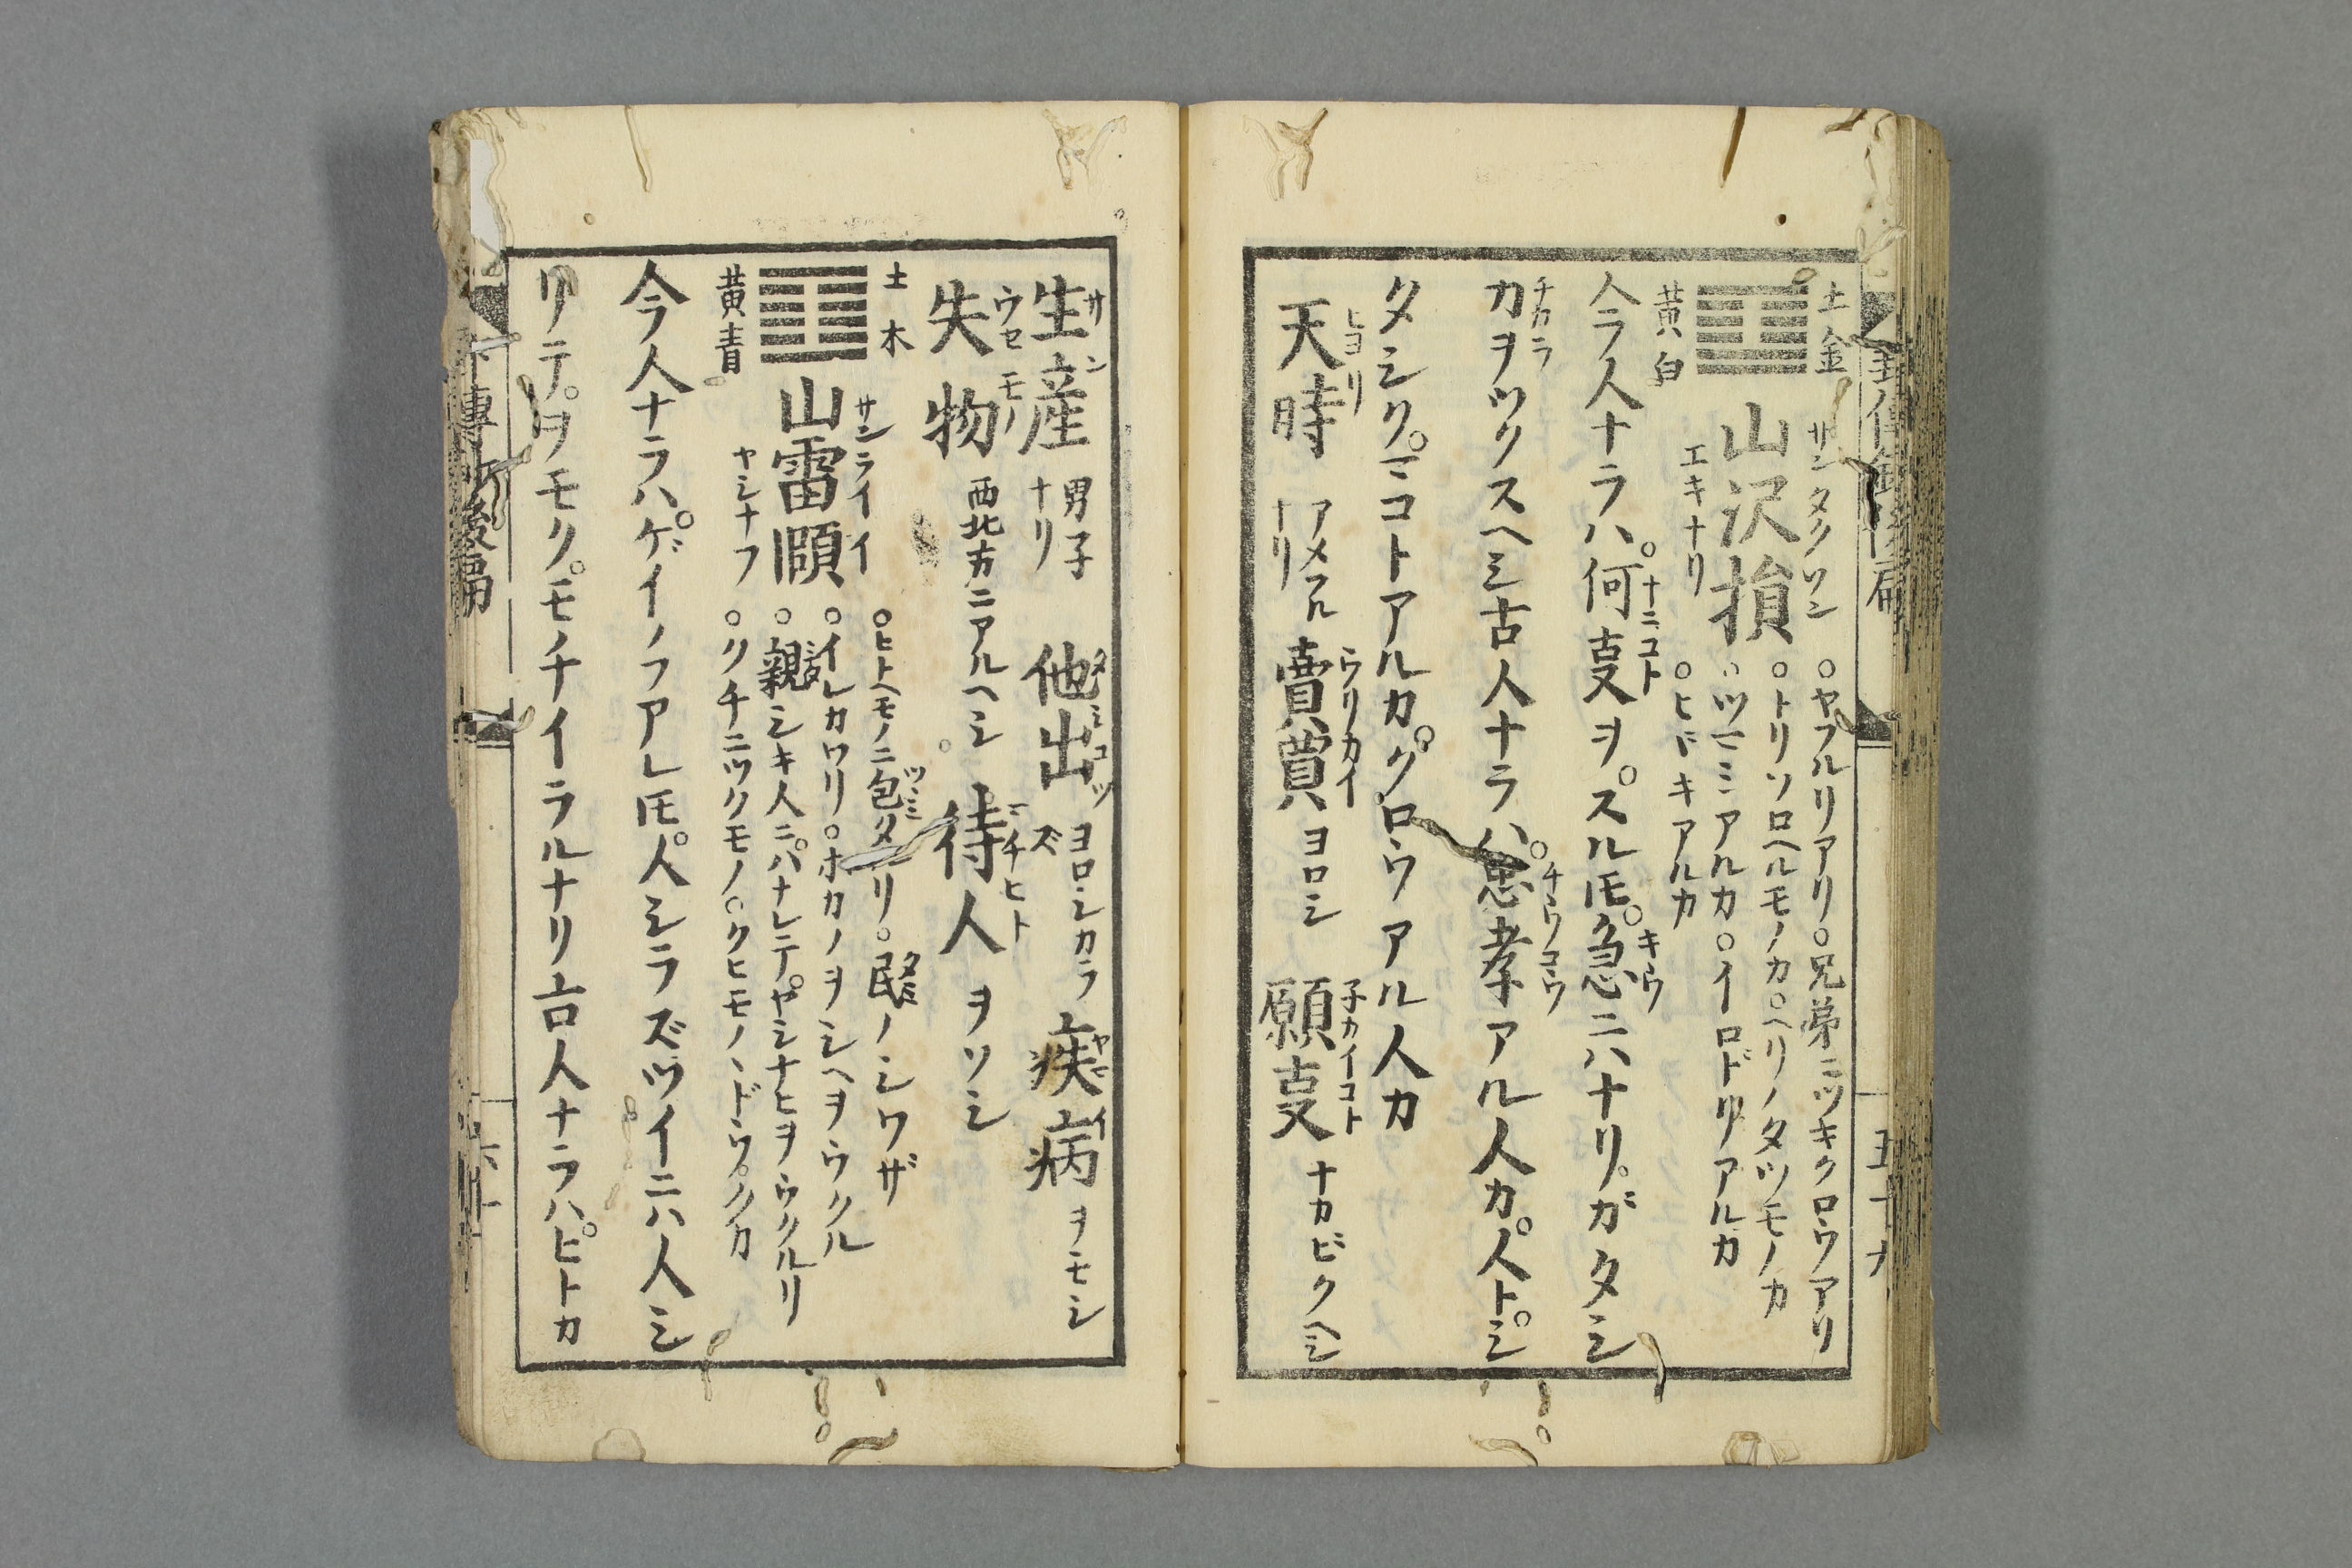 土金
黄白
山沢損
サンタクソン
エキナリ
○ヤフルリアリ○兄弟ニツキクロウアリ
○トリソロヘルモノカ○ヘリノタツモノカ
○ツミアルカ○イロドリアルカ
○ヒヾキアルカ
今人ナラハ○何叓ヲ○スルモ○急ニハナリガタシ
ナニコト
キウ
力ヲツクスヘシ古人ナラハ○忠孝アル人カ○人トシ
チカラ
チウコウ
タシク○マコトアルカ○クロウアル人カ
天時 アメフルナリ 賣買 ヨロシ 願叓 ナカビクヘシ
ヒヨリ
ウリカイ
子カイコト
五十九
生産 男子ナリ 他出 ヨロシカラズ 疾病 ヲモシ
サン
ヤマイ
失物 西北方ニアルヘシ 待人 ヲソシ
ウセモノ
マチヒト
土木
黄青
山雷頤
サンライイ
ヤシナフ
○ヒトヘモノニ包タリ○民ノシワザ
ツヽミ
タミ
○イレカワリ○ホカノヲシヘヲウクル
○親シキ人ニハナレテ○ヤシナヒヲウクルリ
○クチニツクモノ○クヒモノヽドウ○クカ
今人ナラハ○ゲイノフアレ𪜈○人シラズツイニハ人シ
リテ○ヲモク○モチイラルナリ古人ナラハ○ヒトカ
六十